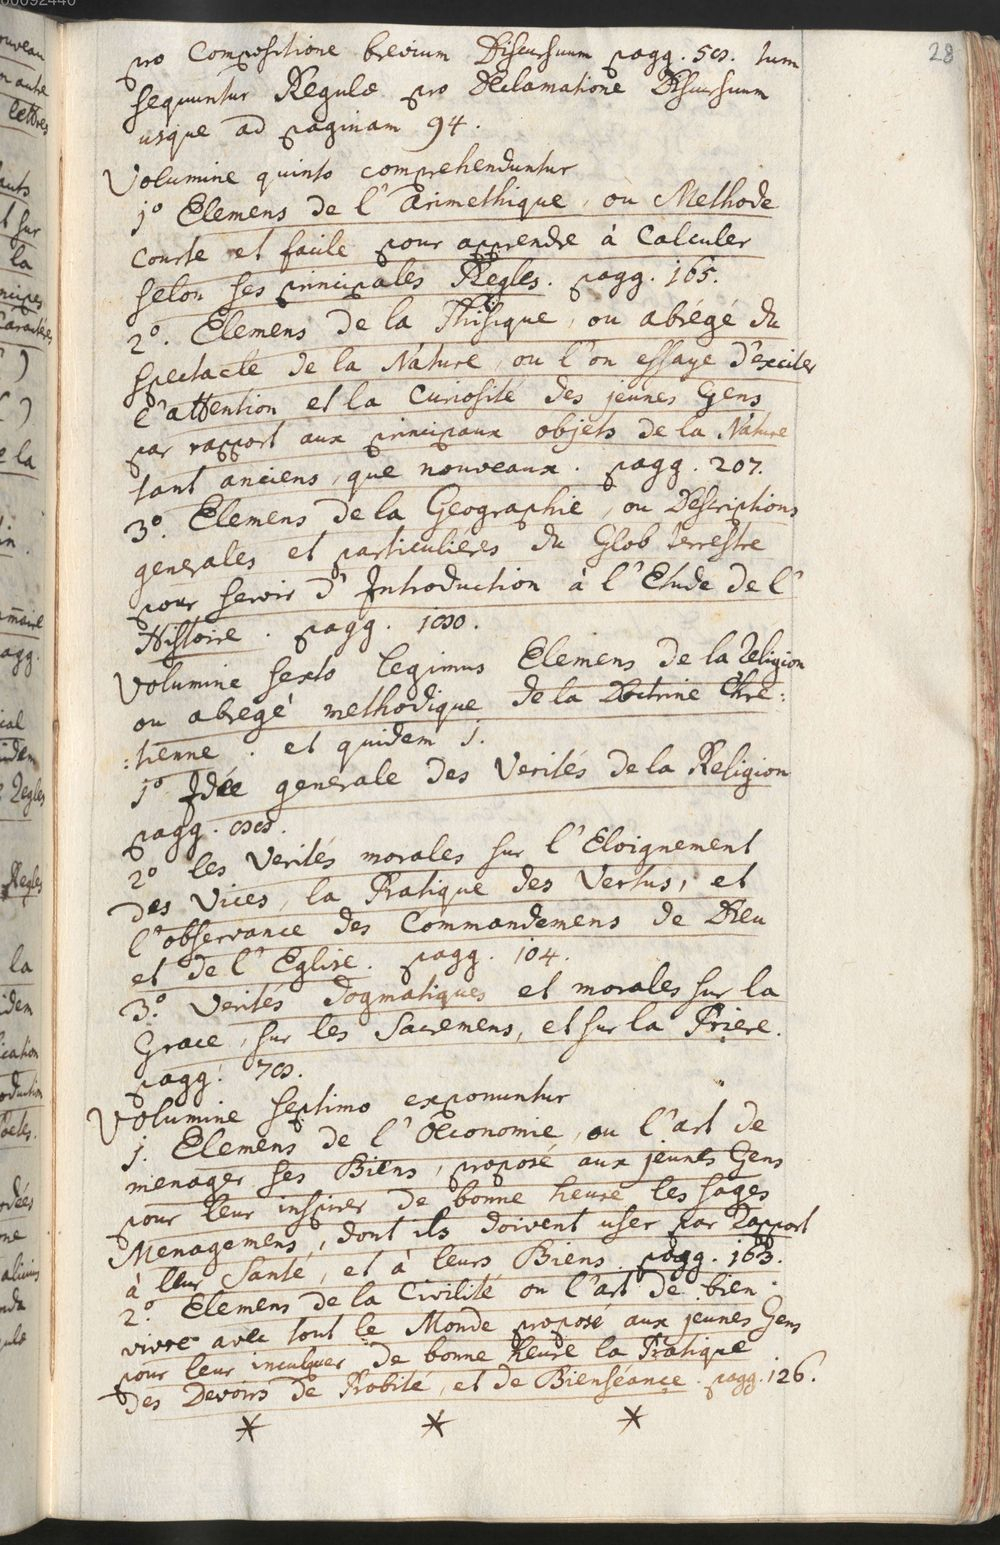 28
pro Compositione brevium Discursuum pagg. 58. tum
sequuntur Regulæ pro Declamatione Discursuum
usque ad paginam 94.
Volumine quinto comprehenduntur
1º Elemens de l'Arimethique, ou Methode
Courte et facile pour apprendre à Calculer
selon ses principales Regles. pagg. 165.
2º. Elemens de la Phisique, ou abrégé du
spectacle de la Nature, ou l'on essaye d'exciter
l'attention et la Curiosité des jeunes Gens
par rapport aux principaux objets de la Nature
tant anciens, que nouveaux. pagg. 207.
3º. Elemens de la Geographie, ou Descriptions
generales et particulières du Glob terrestre
pour servir d'Introduction à l'Etude de l'
Histoire. pagg.
Volumine sexto legimus Elemens de la Religion
ou abregé methodique de la Doctrine Chre:
:tienne. et quidem 1.
1º Idée generale des Verités de la Religion
pagg.
2º les Verités morales sur l'Eloignement
des Vices, la Pratique des Vertus, et
l'observance des Commandemens de Dieu
et de l'Eglise. pagg. 104.
3º. Verités dogmatiques et morales sur la
Grace, sur les Sacremens, et sur la Priere.
pagg. 78.
Volumine septimo exponuntur
1. Elemens de l'Œconomie, ou l'art de
menager ses Biens, proposé aux jeunes Gens
pour leur inspirer de bonne heure les sages
Menagemens, dont ils doivent user par Rapport
à leur Santé, et à leurs Biens. pagg. 163.
2º. Elemens de la Civilité ou l'art de bien
vivre avec tout le Monde proposé aux jeunes Gens
pour leur inculquer de bonne heure la Pratique
des Devoirs de Probité, et de Bienséance. pagg. 126.
* * *